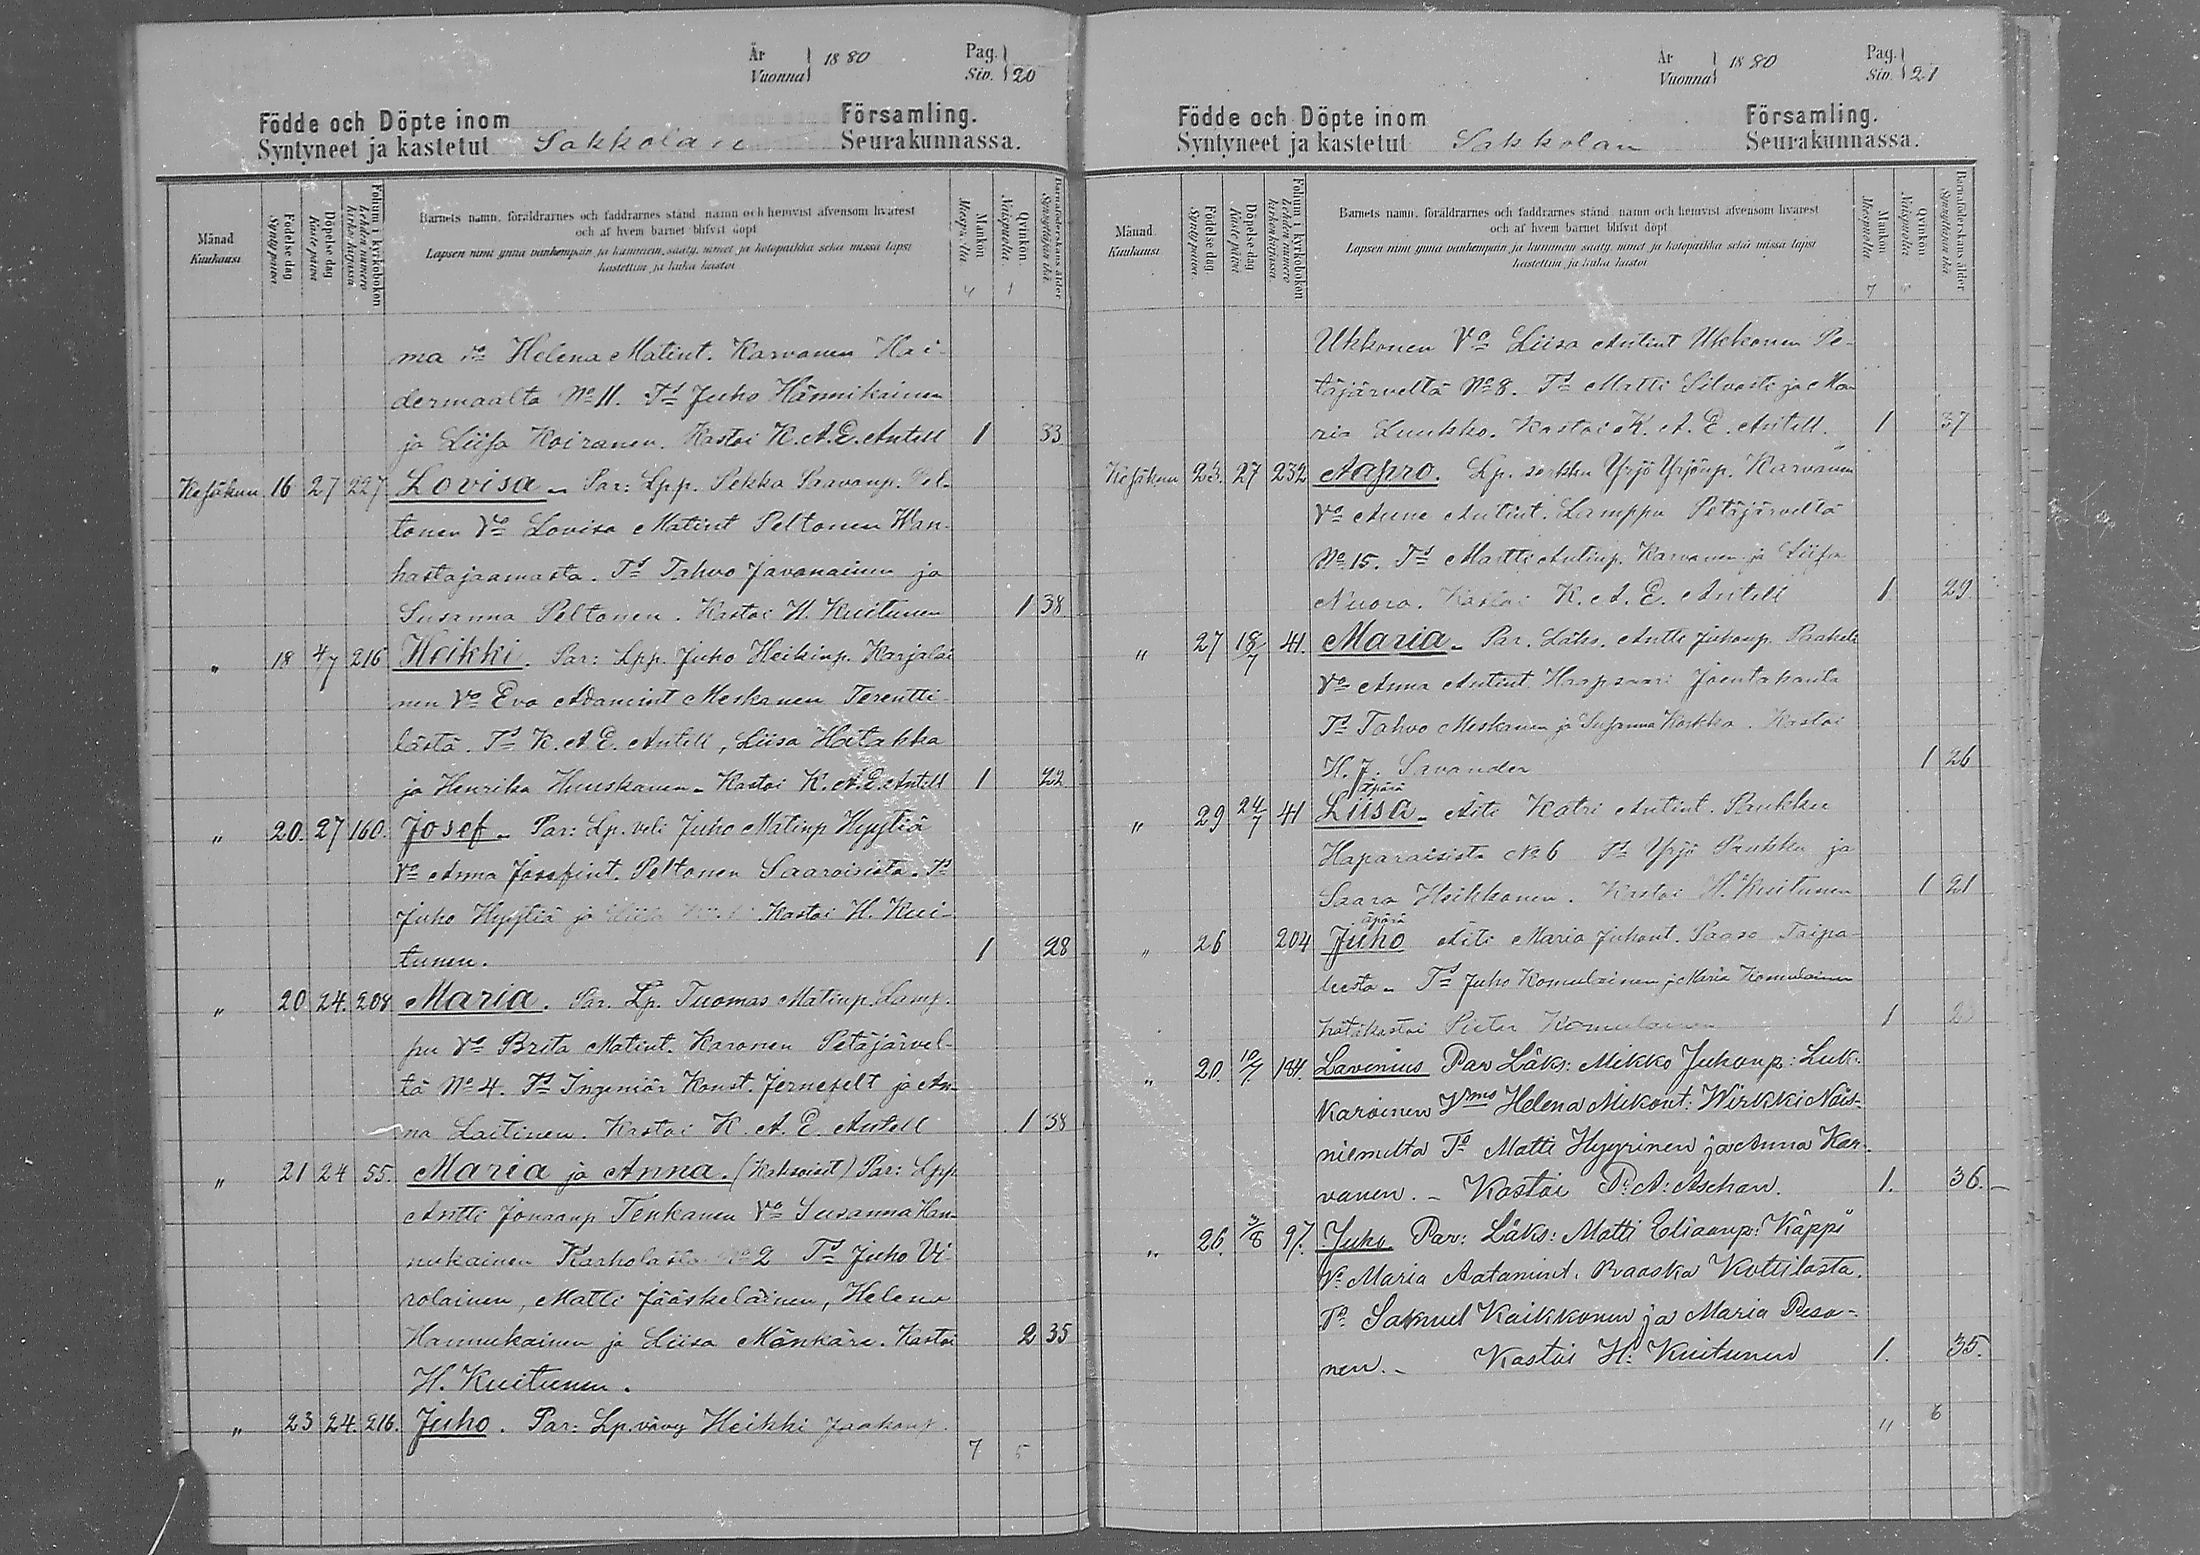 År 1880 Pag.
Vuonna Siv. 20
Födde och Döpte inom Församling.
Syntyneet ja kastetut Sakkolan Seurakunnassa.
Månad Kuukausi
Födelsedag Syntypäivä
Döpelsedag Kastepäivä
Folium i kyrkoboken Lehden numero kirkonkirjassa
Barnets namn, föräldrarnes och faddrarnes stånd, namn och hemvist äfvensom hvarest
och af hvem barnet blifvit döpt
Lapsen nimi ynnä vanhempain ja kummein sääty, nimet ja kotopaikka sekä missä lapsi
kastettiin ja kuka kastoi
Mankön Miespuolta
Qvinkön Naispuolta
Barnaföderskans ålder Synnyttäjän ikä
4 1
ma Vo Helena Matint. Karvanen Hai-
dermaalta No 11. Td Juho Hännikäinen
ja Liisa Koiranen. Kastoi K. A. E. Antell 1 33
Kesäkuu 16 27 227 Lovisa Par: Lpp. Pekka Paavonp. Pel-
tonen Vo Lovisa Matint Peltonen Wan-
hastajaamasta. Td Tahvo Javanainen ja
Susanna Peltonen. Kastoi H. Kuitunen 1 38
" 18 4/7 216 Heikki. Par: Lpp. Juho Heikinp. Karjalai
nen Vo Eva Adamint Meskanen Terentti-
lästä. Td K. A. E. Antell, Liisa Hatakka
ja Henrika Huuskanen - Kastoi K. A. E. Antell 1 22
" 20. 27 160. Josef - Par: Lp. veli Juho Matinp Hyytiä
Vo Anna Josefint. Peltonen Saaroisista. Td
Juho Hyytiä ja Kastoi H. Kui-
tunen. 1 28
" 20 24. 208 Maria. Par. Lp. Tuomas Matinp. Lamp-
pu Vo Brita Matint. Karonen Petäjärvel-
tä No 4. Td Ingeniör Konst. Jernefelt ja An-
na Laitinen. Kastoi K. A. E. Antell 1 38
" 21 24 55. Maria ja Anna. (Kaksoiset) Par: Lpp.
Antti Jonaanp Tenkanen Vo Susanna Han-
nukainen Karholasta No 2 Td Juho Vi-
rolainen, Matti Jääskeläinen, Helena
Hannukainen ja Liisa Mänkäre. Kastoi 2 35
H. Kuitunen.
" 23 24. 216. Juho. Par: Lp. vävy Heikki Jaakonp.
7 5
År 1880 Pag.
Vuonna Siv. 21
Födde och Döpte inom Församling.
Syntyneet ja kastetut Sakkolan Seurakunnassa.
Månad Kuukausi
Födelsedag Syntypäivä
Döpelsedag Kastepäivä
Folium i kyrkoboken Lehden numero kirkonkirjassa
Barnets namn, föräldrarnes och faddrarnes stånd, namn och hemvist äfvensom hvarest
och af hvem barnet blifvit döpt
Lapsen nimi ynnä vanhempain ja kummein sääty, nimet ja kotopaikka sekä missä lapsi
kastettiin ja kuka kastoi
Mankön Miespuolta
Qvinkön Naispuolta
Barnaföderskans ålder Synnyttäjän ikä
7
Ukkonen Vo Liisa Antint Ukkonen Pe-
täjärveltä No 8. Td Matti Silvasti ja Ma-
ria Luukko. Kastoi K. A. E. Antell. 1 37
Kesäkuu 23. 27 232 Aapro. Lp. serkku Yrjö Yrjönp. Karvanen
Vo Anne Antint. Lamppu Petäjärveltä
No 15. Td Martti Antinp. Karvanen ja Liisa
Nuora. Kastoi K. A. E. Antell 1 29
" 27 18/7 41. Maria - Par. Läks. Antti Juhonp. Paakel
Vo Anna Antint. Haapsaari Joentakaata
Td Tahvo Meskanen ja Susanna Koikka. Kastoi
H. J. Savander 1 26
äpärä
" 29 24/7 41 Liisa - Äiti Katri Antint. Paukku
Haparaisista No 6 Td Yrjö Paukku ja
Saara Heikkonen. Kastoi H. Kuitunen 1 21
äpärä
" 26 204 Juho Äiti Maria Juhont. Paaso Taipa-
leesta - Td Juho Komulainen ja Maria Komulainen
hätäkastoi Pieter Komulainen 1
" 20. 10/7. 184. Lavinius Par Läks: Mikko Juhonp: Luk-
karoinen Vmo Helena Mikont: Wirkki Nois-
niemeltä Td Matti Hyyrinen ja Anna Kar-
vanen. - Kastoi P. A: Aschan. 1. 36.
" 26. 3/8 97. Juho Par: Läks: Matti Eliaanp: Käppi
Vo Maria Aatamint. Raaska Kottilasta.
Td Samuel Kaikkonen ja Maria Peso-
nen. - Kastoi H: Kuitunen 1. 35.
11 6